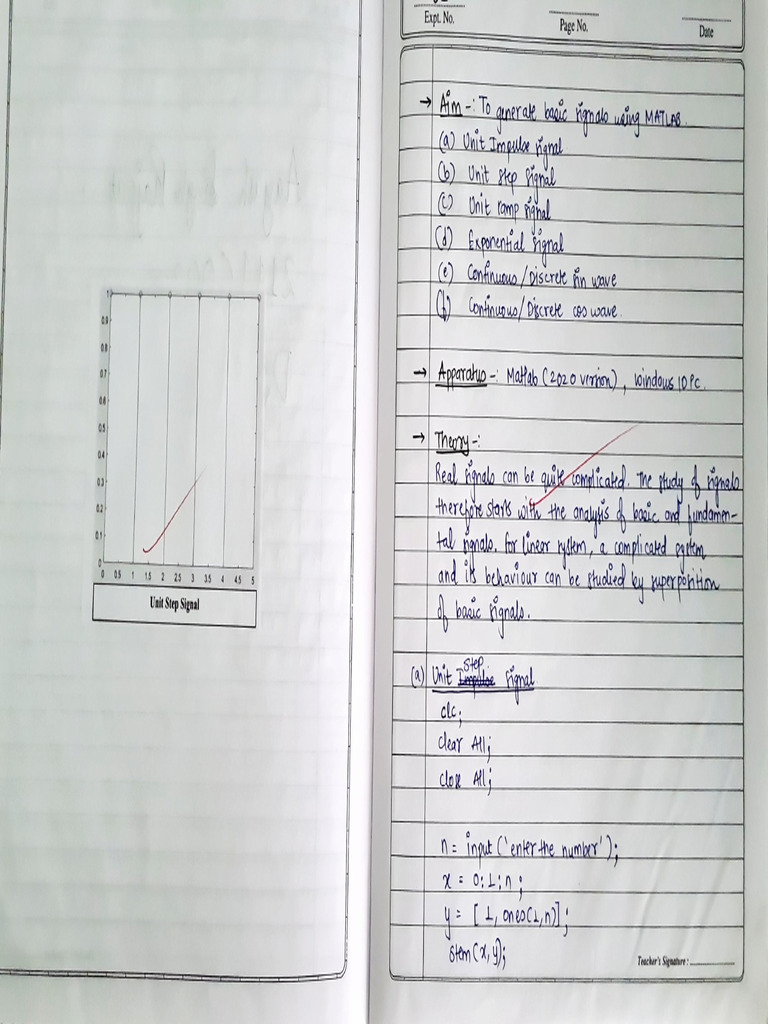 1
0.9
0.8
0.7
0.6
0.5
0.4
0.3
0.2
0.1
0
0 0.5 1 1.5 2 2.5 3 3.5 4 4.5 5
Unit Step Signal
Expt. No.
Page No.
Date
→ Aim -: To generate basic signals using MATLAB.
(a) Unit Impulse signal
(b) Unit step signal
(c) Unit ramp signal
(d) Exponential signal
(e) Continuous/Discrete sin wave
(f) Continuous/Discrete cos wave.
→ Apparatus -: Matlab (2020 version), windows 10 Pc.
→ Theory -:
Real signals can be quite complicated. The study of signals
therefore starts with the analysis of basic and fundamen-
tal signals. For linear system, a complicated system
and its behaviour can be studied by superposition
of basic signals.
(a) Unit Step signal
clc;
clear All;
close All;
n = input('enter the number');
x = 0:1:n;
y = [1, ones(1,n)];
stem(x,y);
Teacher's Signature :